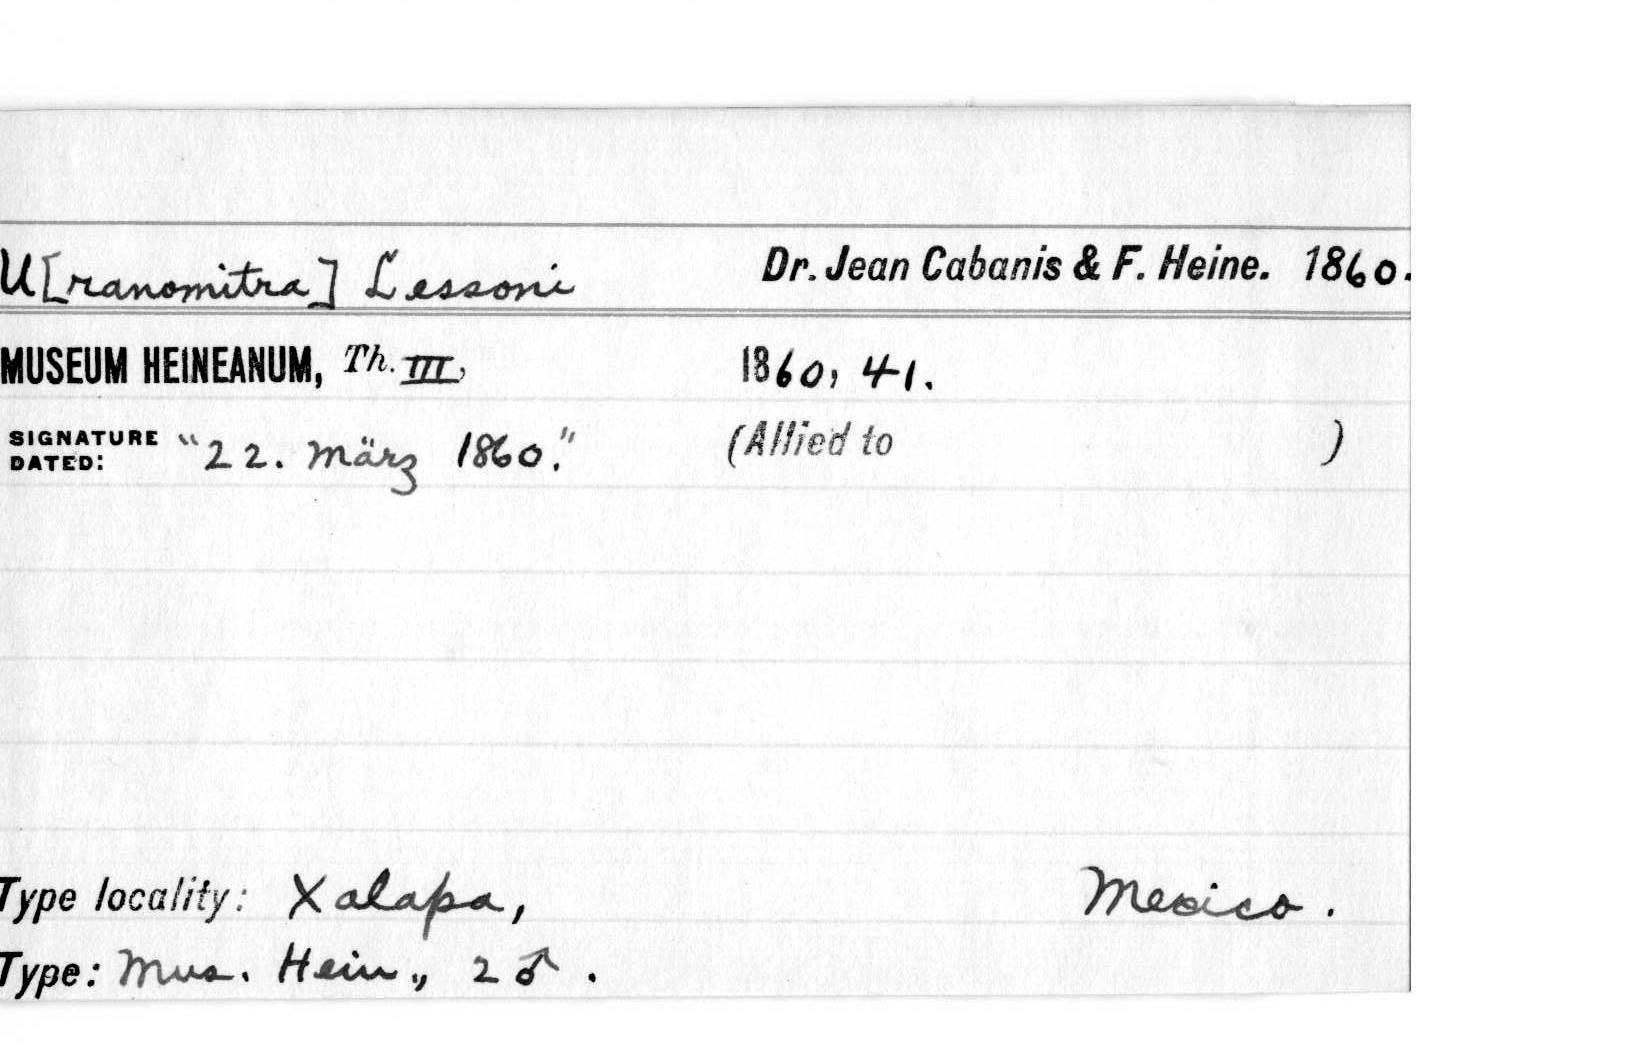 U[ranomitra] Lessoni Dr. Jean Cabanis & F. Heine. 1860.
MUSEUM HEINEANUM, Th. III, 1860, 41.
SIGNATURE DATED: "22. März 1860." (Allied to )
Type locality: Xalapa, Mexico.
Type: Mus. Hein., 2 ♂.